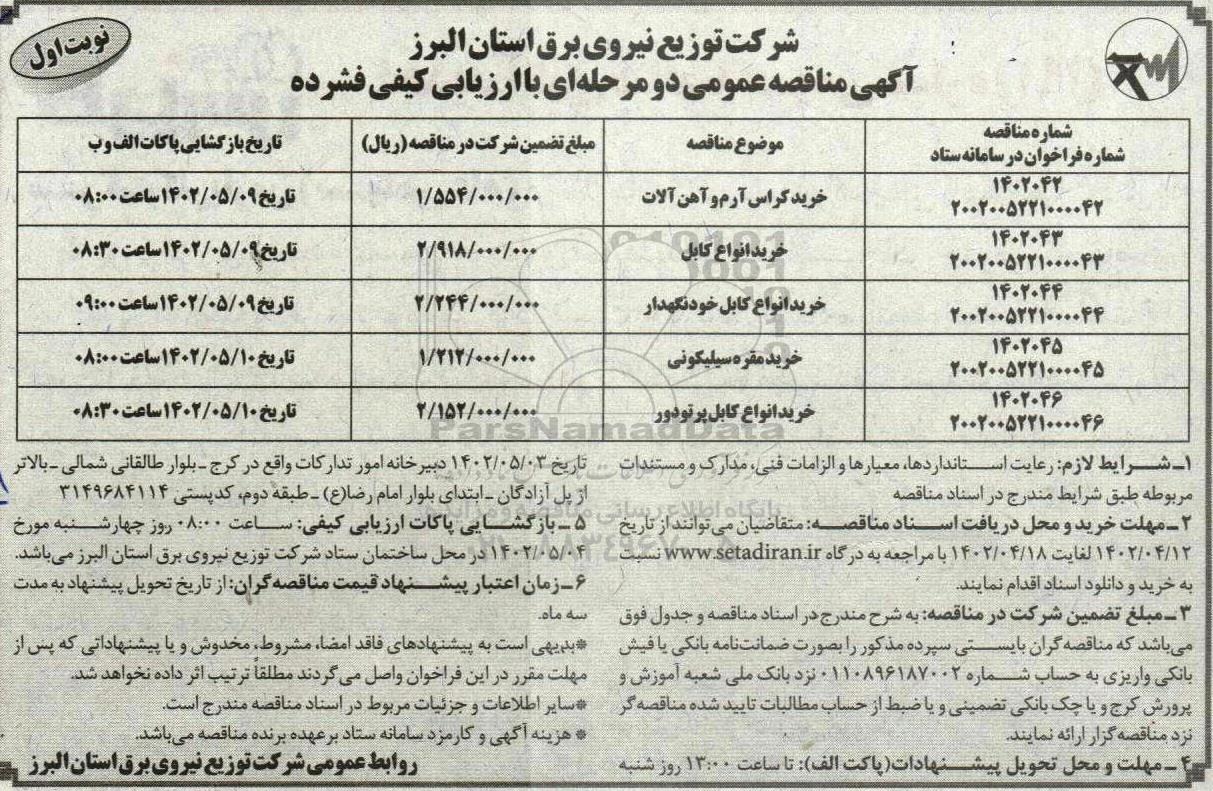 نوبت اول
شرکت توزیع نیروی برق استان البرز
آگهی مناقصه عمومی دو مرحله‌ای با ارزیابی کیفی فشرده
شماره مناقصه
شماره فراخوان در سامانه ستاد
موضوع مناقصه
مبلغ تضمین شرکت در مناقصه (ریال)
تاریخ بازگشایی پاکات الف و ب
۱۴۰۲۰۴۲
۲۰۰۲۰۰۵۲۲۱۰۰۰۰۴۲
خرید کراس آرم و آهن آلات
۱/۵۵۴/۰۰۰/۰۰۰
تاریخ ۱۴۰۲/۰۵/۰۹ ساعت ۰۸:۰۰
۱۴۰۲۰۴۳
۲۰۰۲۰۰۵۲۲۱۰۰۰۰۴۳
خرید انواع کابل
۲/۹۱۸/۰۰۰/۰۰۰
تاریخ ۱۴۰۲/۰۵/۰۹ ساعت ۰۸:۳۰
۱۴۰۲۰۴۴
۲۰۰۲۰۰۵۲۲۱۰۰۰۰۴۴
خرید انواع کابل خودنگهدار
۲/۲۴۴/۰۰۰/۰۰۰
تاریخ ۱۴۰۲/۰۵/۰۹ ساعت ۰۹:۰۰
۱۴۰۲۰۴۵
۲۰۰۲۰۰۵۲۲۱۰۰۰۰۴۵
خرید مقره سیلیکونی
۱/۲۱۲/۰۰۰/۰۰۰
تاریخ ۱۴۰۲/۰۵/۱۰ ساعت ۰۸:۰۰
۱۴۰۲۰۴۶
۲۰۰۲۰۰۵۲۲۱۰۰۰۰۴۶
خرید انواع کابل پرتودور
۲/۱۵۲/۰۰۰/۰۰۰
تاریخ ۱۴۰۲/۰۵/۱۰ ساعت ۰۸:۳۰
ParsNamadData
۱ـ شــرایط لازم: رعایت اســتانداردها، معیارها و الزامات فنی، مدارک و مستندات
مربوطه طبق شرایط مندرج در اسناد مناقصه
۲ ـ مهلت خرید و محل دریافت اســناد مناقصــه: متقاضیان می‌توانند از تاریخ
۱۴۰۲/۰۴/۱۲ لغایت ۱۴۰۲/۰۴/۱۸ با مراجعه به درگاه www.setadiran.ir نسبت
به خرید و دانلود اسناد اقدام نمایند.
۳ ـ مبلغ تضمین شرکت در مناقصه: به شرح مندرج در اسناد مناقصه و جدول فوق
می‌باشد که مناقصه گران بایســتی سپرده مذکور را بصورت ضمانت‌نامه بانکی یا فیش
بانکی واریزی به حساب شــماره ۰۱۱۰۸۹۶۱۸۷۰۰۲ نزد بانک ملی شعبه آموزش و
پرورش کرج و یا چک بانکی تضمینی و یا ضبط از حساب مطالبات تایید شده مناقصه گر
نزد مناقصه گزار ارائه نمایند.
۴ ـ مهلت و محل تحویل پیشــنهادات(پاکت الف): تا ساعت ۱۳:۰۰ روز شنبه
تاریخ ۱۴۰۲/۰۵/۰۳ دبیرخانه امور تدارکات واقع در کرج ـ بلوار طالقانی شمالی ـ بالاتر
از پل آزادگان ـ ابتدای بلوار امام رضا(ع) ـ طبقه دوم، کدپستی ۳۱۴۹۶۸۴۱۱۴
۵ ـ بازگشــایی پاکات ارزیابی کیفی: ســاعت ۰۸:۰۰ روز چهارشــنبه مورخ
۱۴۰۲/۰۵/۰۴ در محل ساختمان ستاد شرکت توزیع نیروی برق استان البرز می‌باشد.
۶ ـ زمان اعتبار پیشــنهاد قیمت مناقصه گران: از تاریخ تحویل پیشنهاد به مدت
سه ماه.
*بدیهی است به پیشنهادهای فاقد امضا، مشروط، مخدوش و یا پیشنهاداتی که پس از
مهلت مقرر در این فراخوان واصل می‌گردند مطلقاً ترتیب اثر داده نخواهد شد.
*سایر اطلاعات و جزئیات مربوط در اسناد مناقصه مندرج است.
* هزینه آگهی و کارمزد سامانه ستاد برعهده برنده مناقصه می‌باشد.
روابط عمومی شرکت توزیع نیروی برق استان البرز